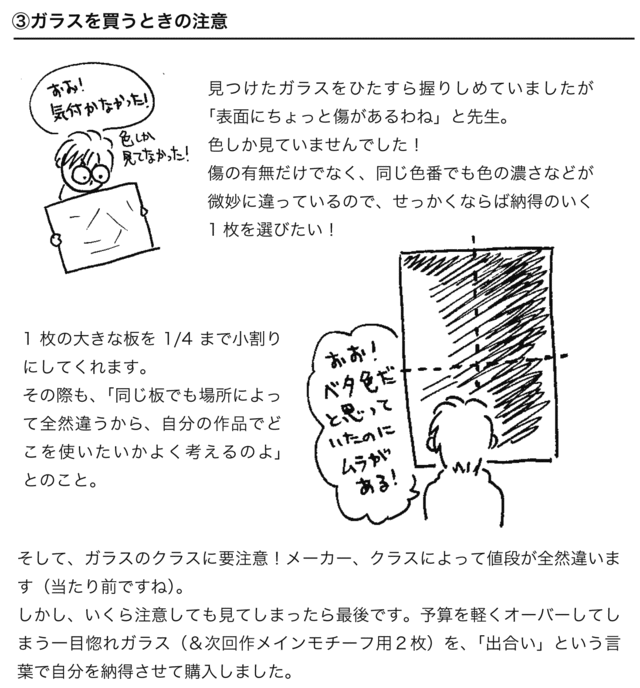 ③ガラスを買うときの注意
おお!
気付かなかった!
色しか
見てなかった!
見つけたガラスをひたすら握りしめていましたが
「表面にちょっと傷があるわね」と先生。
色しか見ていませんでした!
傷の有無だけでなく、同じ色番でも色の濃さなどが
微妙に違っているので、せっかくならば納得のいく
1枚を選びたい!
1枚の大きな板を1/4まで小割り
にしてくれます。
その際も、「同じ板でも場所によっ
て全然違うから、自分の作品でど
こを使いたいかよく考えるのよ」
とのこと。
おお!
ベタ色だ
と思って
いたのに
ムラが
ある!
そして、ガラスのクラスに要注意!メーカー、クラスによって値段が全然違いま
す(当たり前ですね)。
しかし、いくら注意しても見てしまったら最後です。予算を軽くオーバーしてし
まう一目惚れガラス(&次回作メインモチーフ用2枚)を、「出合い」という言
葉で自分を納得させて購入しました。